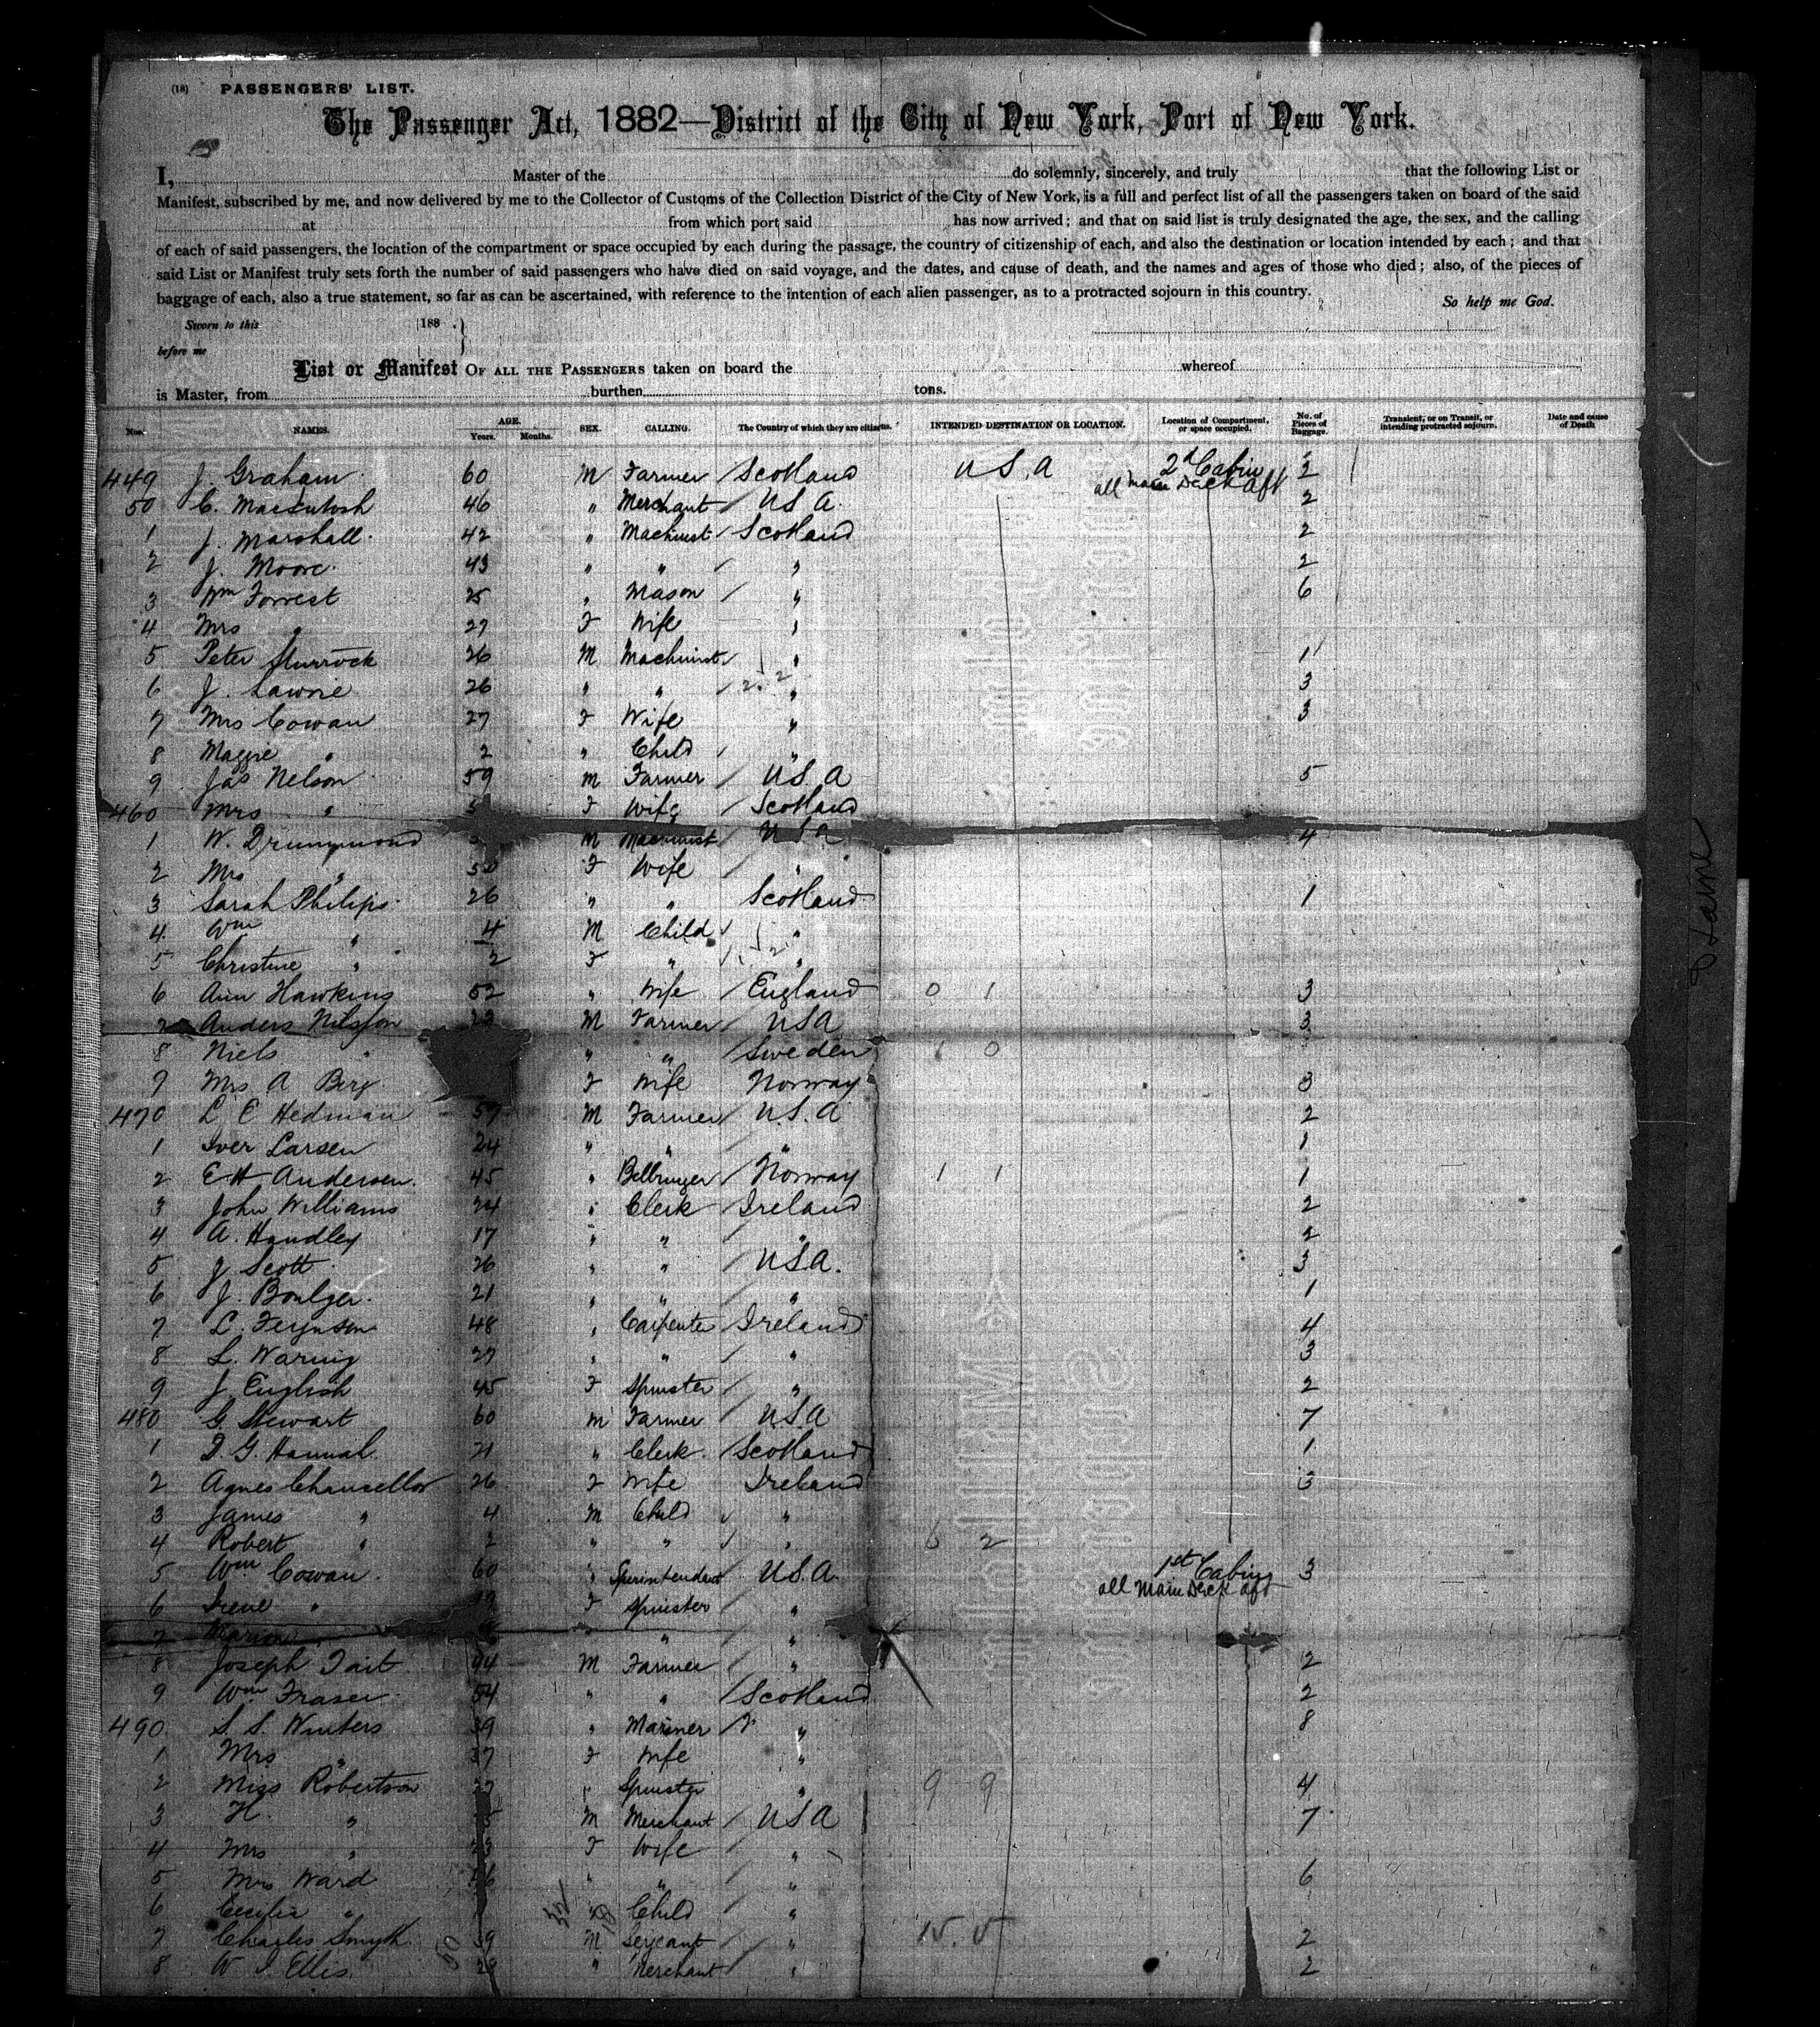 (18) PASSENGERS' LIST.
The Passenger Act, 1882—District of the City of New York, Port of New York.
I, Master of the do solemnly, sincerely, and truly that the following List or
Manifest, subscribed by me, and now delivered by me to the Collector of Customs of the Collection District of the City of New York, is a full and perfect list of all the passengers taken on board of the said
at from which port said has now arrived; and that on said list is truly designated the age, the sex, and the calling
of each of said passengers, the location of the compartment or space occupied by each during the passage, the country of citizenship of each, and also the destination or location intended by each; and that
said List or Manifest truly sets forth the number of said passengers who have died on said voyage, and the dates, and cause of death, and the names and ages of those who died; also, of the pieces of
baggage of each, also a true statement, so far as can be ascertained, with reference to the intention of each alien passenger, as to a protracted sojourn in this country.
So help me God.
Sworn to this 188 .
before me
List or Manifest OF ALL THE PASSENGERS taken on board the whereof
is Master, from burthen tons.
Nos. NAMES. AGE. Years. Months. SEX. CALLING. The Country of which they are citizens. INTENDED DESTINATION OR LOCATION. Location of Compartment, or space occupied. No. of Pieces of Baggage. Transient, or on Transit, or intending protracted sojourn. Date and cause of Death
449 J. Graham 60 M Farmer Scotland U S. A 2d Cabin 2
all main Deck aft
50 C. Macintosh 46 " Merchant U S A. 2
1 J. Marshall 42 " Machinist Scotland 2
2 J. Moore 43 " " " 2
3 Wm Forrest 25 " Mason " 6
4 Mrs " 27 F Wife "
5 Peter Sturrock 26 M Machinist " 1
6 J. Lawrie 26 " " " 3
7 Mrs Cowan 27 F Wife " 3
8 Maggie " 2 " Child "
9 Jas Nelson 59 M Farmer U S A 5
460 Mrs " F Wife Scotland
1 W. Drummond M Machinist U S A 4
2 Mrs " 50 F Wife "
3 Sarah Philips 26 " " Scotland 1
4 Wm " 4 M Child "
5 Christine " 2 F " "
6 Ann Hawkins 52 " Wife England 0 1 3
7 Anders Nilsson M Farmer USA 3
8 Niels " " " Sweden 1 0
9 Mrs A Berg F Wife Norway 3
470 L E Hedman 57 M Farmer U.S.A 2
1 Iver Larsen 24 " " " 1
2 E H Andersen 45 " Bellringer Norway 1 1 1
3 John Williams 24 " Clerk Ireland 2
4 A. Handley 17 " " " 2
5 J Scott 26 " " U.S.A. 3
6 J. Boulger 21 " " " 1
7 L. Ferguson 48 " Carpenter Ireland 4
8 L. Waring 27 " " " 3
9 J English 45 F Spinster " 2
480 G Stewart 60 M Farmer U.S.A 7
1 D. G. Hannah 21 " Clerk Scotland 1
2 Agnes Chancellor 26 F Wife Ireland 3
3 James " 4 M Child "
4 Robert " 2 " " " 2
5 Wm Cowan 60 " Sperintendant U.S.A. 1st Cabin 3
all Main Deck aft
6 Irene " F Spinster "
7 Marion " " "
8 Joseph Tait 44 M Farmer " 2
9 Wm Fraser 54 " " Scotland 2
490 S. S. Winters 39 " Mariner " 8
1 Mrs " 37 F Wife "
2 Miss Robertson 27 " Spinster " 9 9 4
3 H. " M Merchant U S A 7
4 Mrs " F Wife "
5 Mrs Ward " " " 6
6 Cecilia " " Child "
7 Charles Smyth M " 2
8 W J Ellis " Merchant " 2